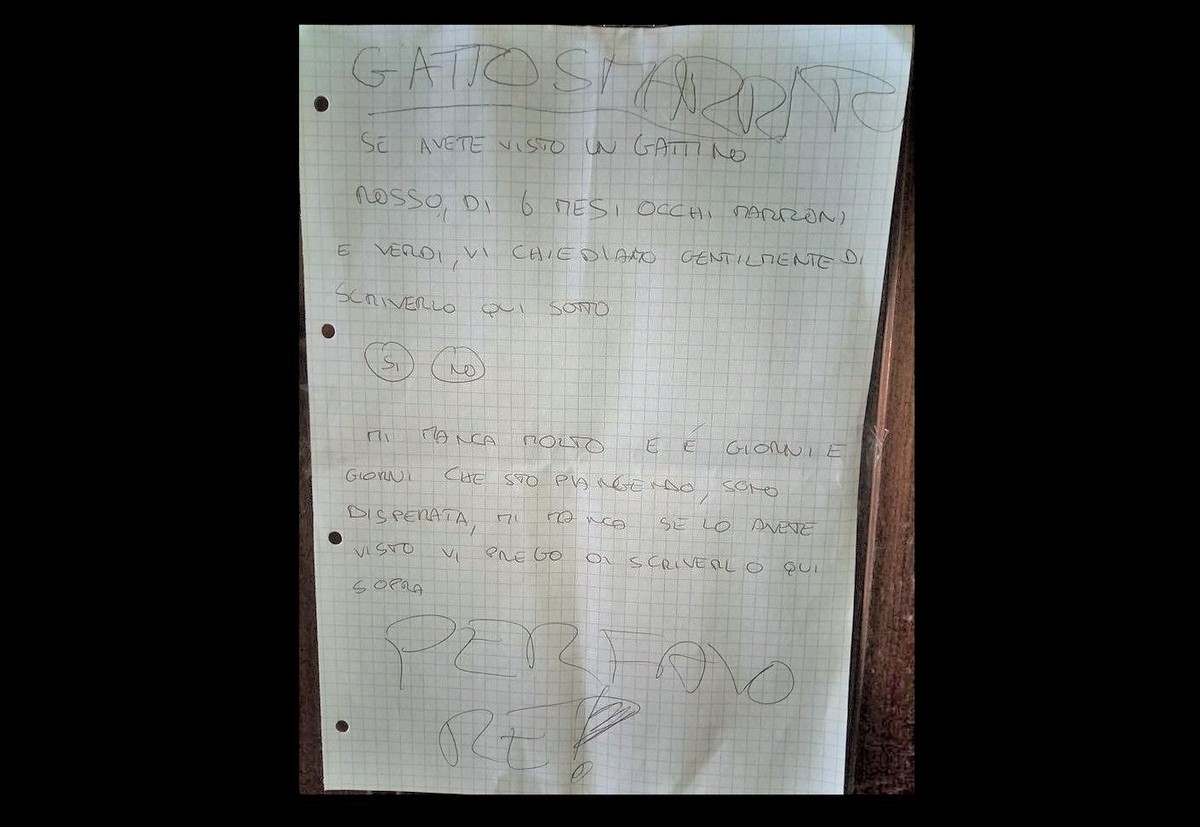 GATTO SMARRITO
SE AVETE VISTO UN GATTINO
ROSSO, DI 6 MESI OCCHI MARRONI
E VERDI, VI CHIEDIAMO GENTILMENTE DI
SCRIVERLO QUI SOTTO
SI NO
MI MANCA MOLTO E É GIORNI E
GIORNI CHE STO PIANGENDO, SONO
DISPERATA, MI MANCA SE LO AVETE
VISTO VI PREGO DI SCRIVERLO QUI
SOPRA
PER FAVO
RE!